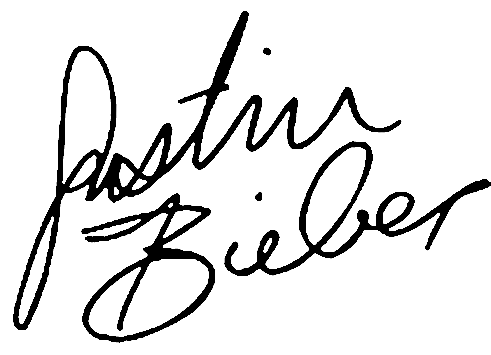 Justin
Bieber